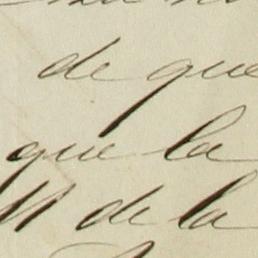 de que
que la
11 de la